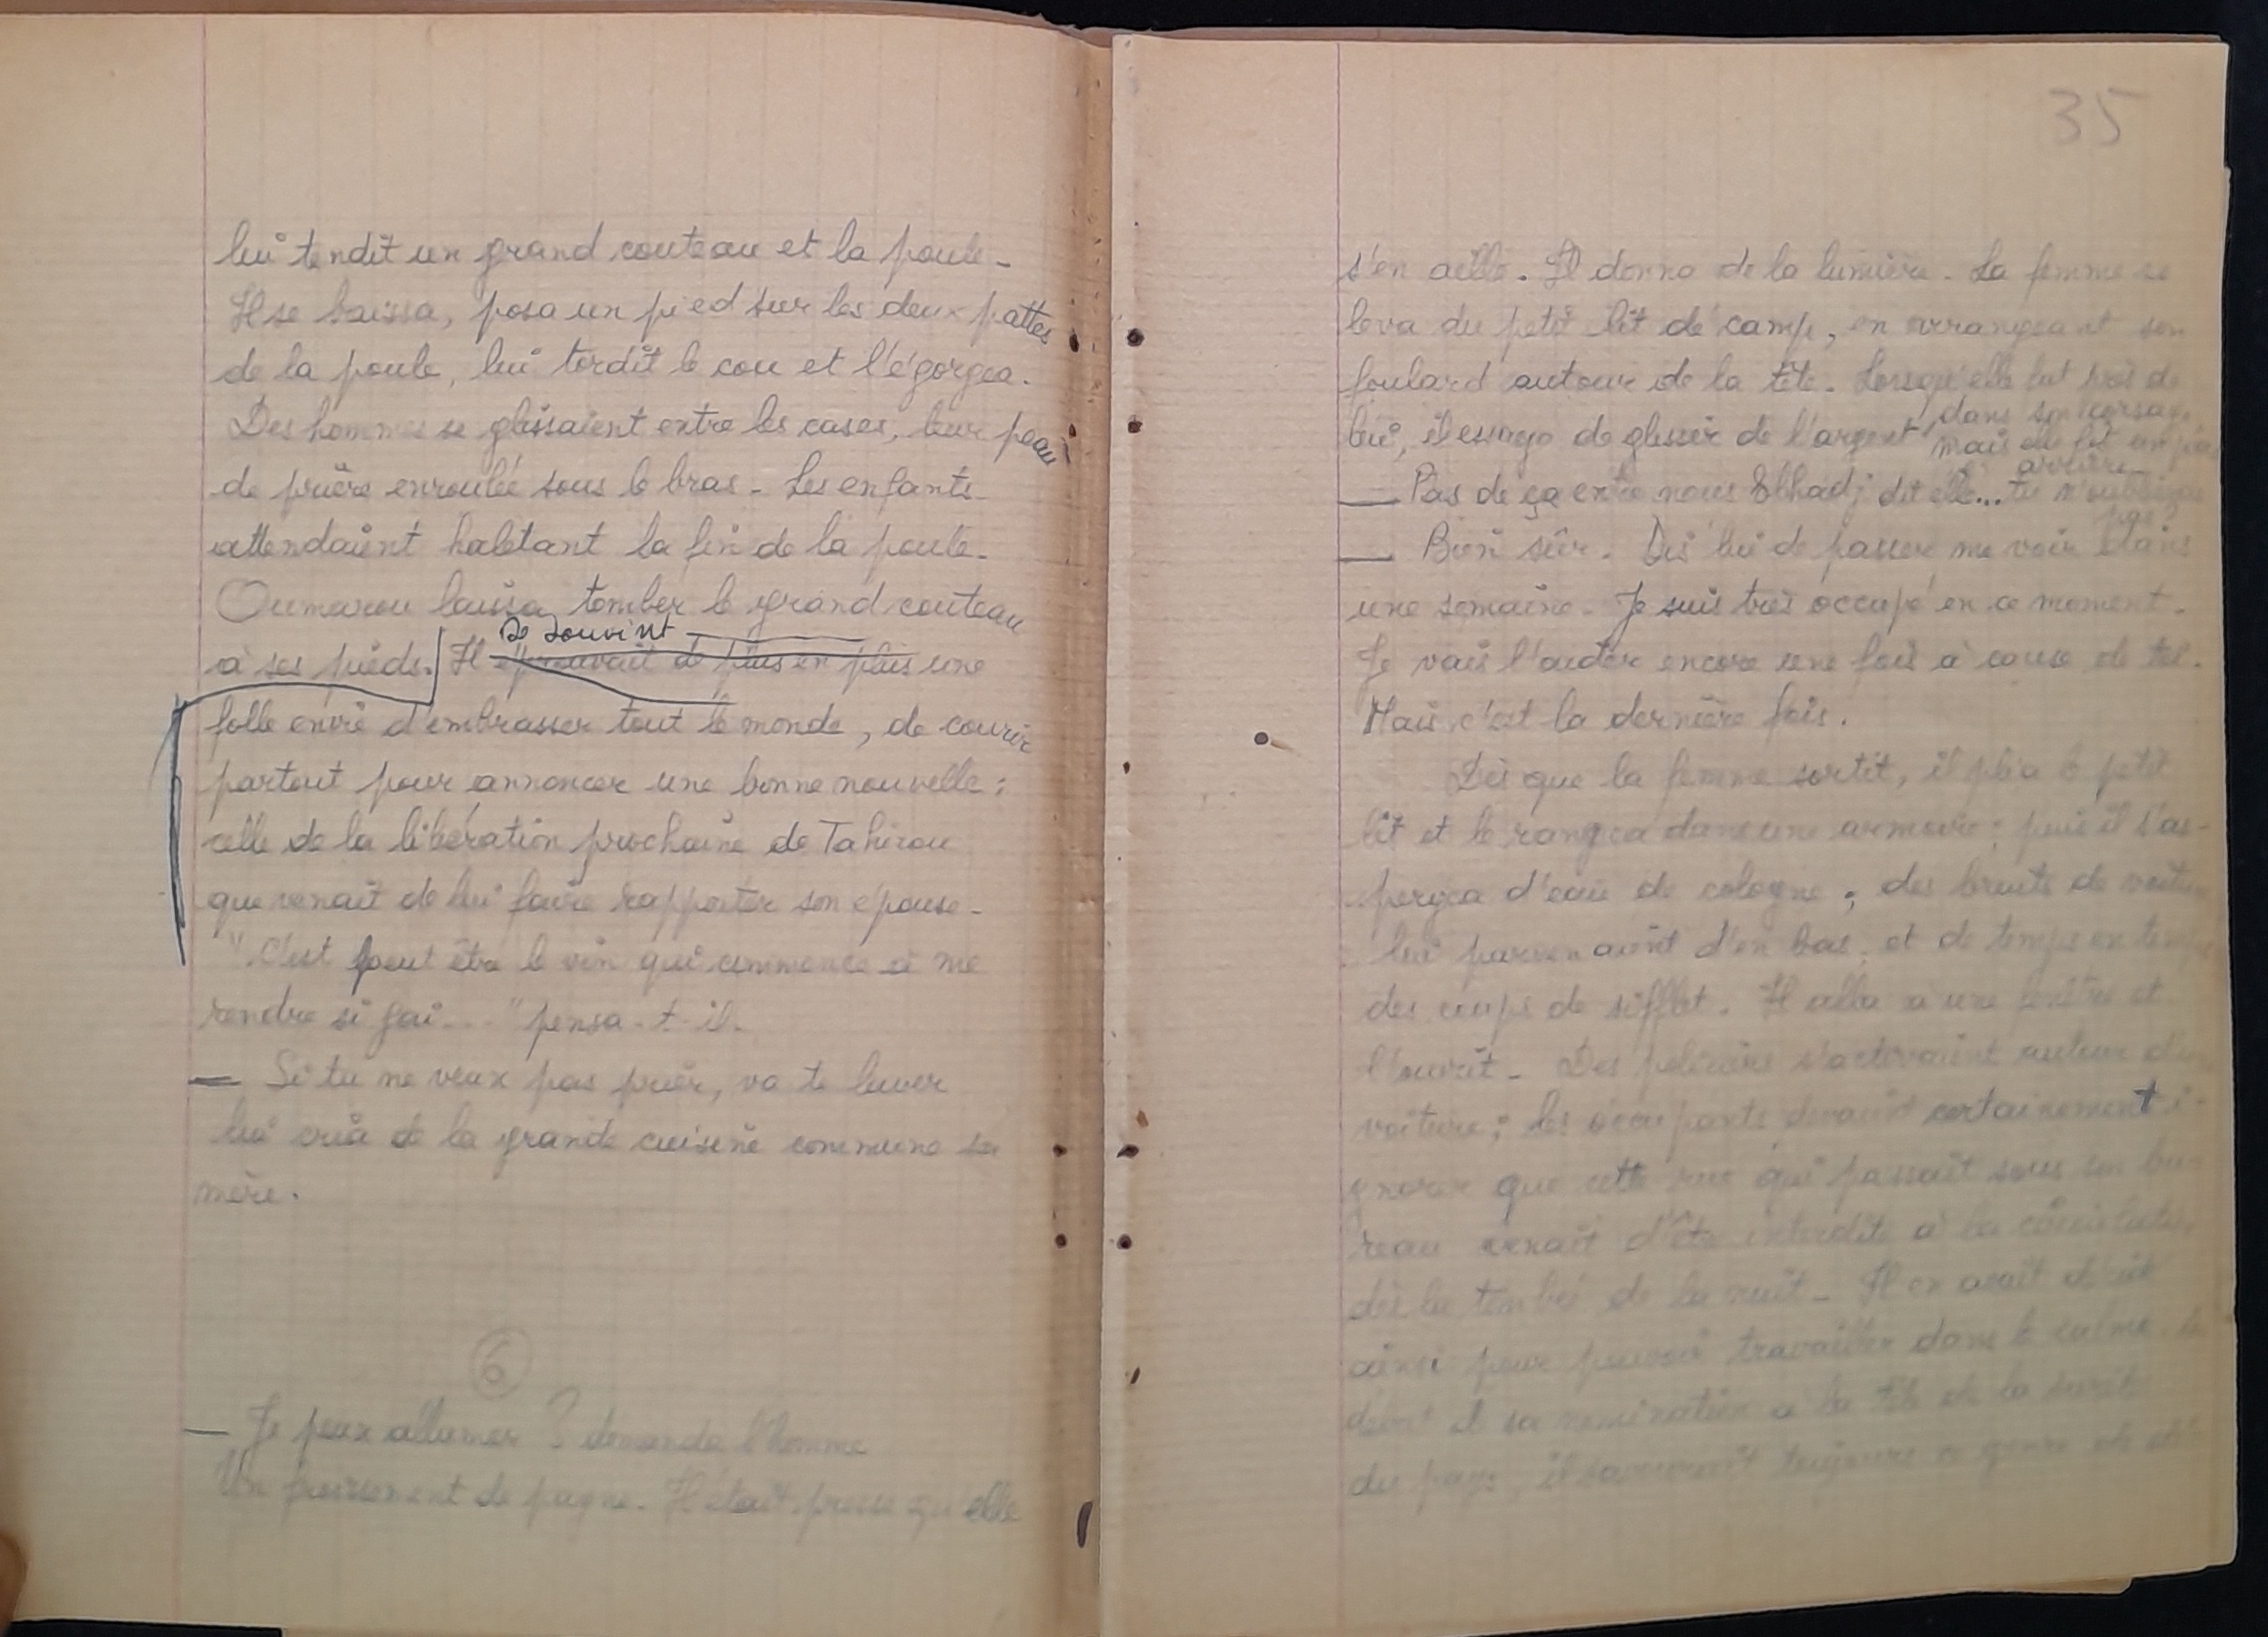 lui tendit un grand couteau et la poule.
Il se baissa, posa un pied sur les deux pattes
de la poule, lui tordit le cou et l'égorgea.
Des hommes se glissaient entre les cases, leur peau
de prière enroulée sous le bras. Les enfants
attendaient haletant la fin de la poule.
Oumarou laissa tomber le grand couteau
se souvint
à ses pieds. Il éprouvait de plus en plus une
folle envie d'embrasser tout le monde, de courir
partout pour annoncer une bonne nouvelle :
celle de la libération prochaine de Tahirou
que venait de lui faire rapporter son épouse.
"C'est peut être le vin qui commence à me
rendre si gai..." pensa-t-il.
— Si tu ne veux pas prier, va te laver
lui cria de la grande cuisine commune sa
mère.
6
— Je peux allumer ? demanda l'homme
Un froissement de pagne. Il était pressé qu'elle
35
s'en aille. Il donna de la lumière. La femme se
leva du petit lit de camp, en arrangeant son
foulard autour de la tête. Lorsqu'elle fut près de
lui, il essaya de glisser de l'argent dans son corsage,
mais elle fit un pas
arrière
— Pas de ça entre nous Elhadj dit elle... tu n'oublieras
pas ?
— Bien sûr. Dis lui de passer me voir dans
une semaine. Je suis très occupé en ce moment.
Je vais l'aider encore une fois à cause de toi.
Mais c'est la dernière fois.
Dès que la femme sortit, il plia le petit
lit et le rangea dans une armoire ; puis il s'as-
pergea d'eau de cologne ; des bruits de voiture
lui parvenaient d'en bas, et de temps en temps
des coups de sifflet. Il alla à une fenêtre et
l'ouvrit. Des policiers s'activaient autour d'une
voiture ; les occupants devaient certainement i-
gnorer que cette rue qui passait sous son bu-
reau venait d'être interdite à la circulation,
dès la tombée de la nuit. Il en avait décidé
ainsi pour pouvoir travailler dans le calme.
il sa nomination à la tête de la sûreté
du pays, il savourait toujours ce genre de